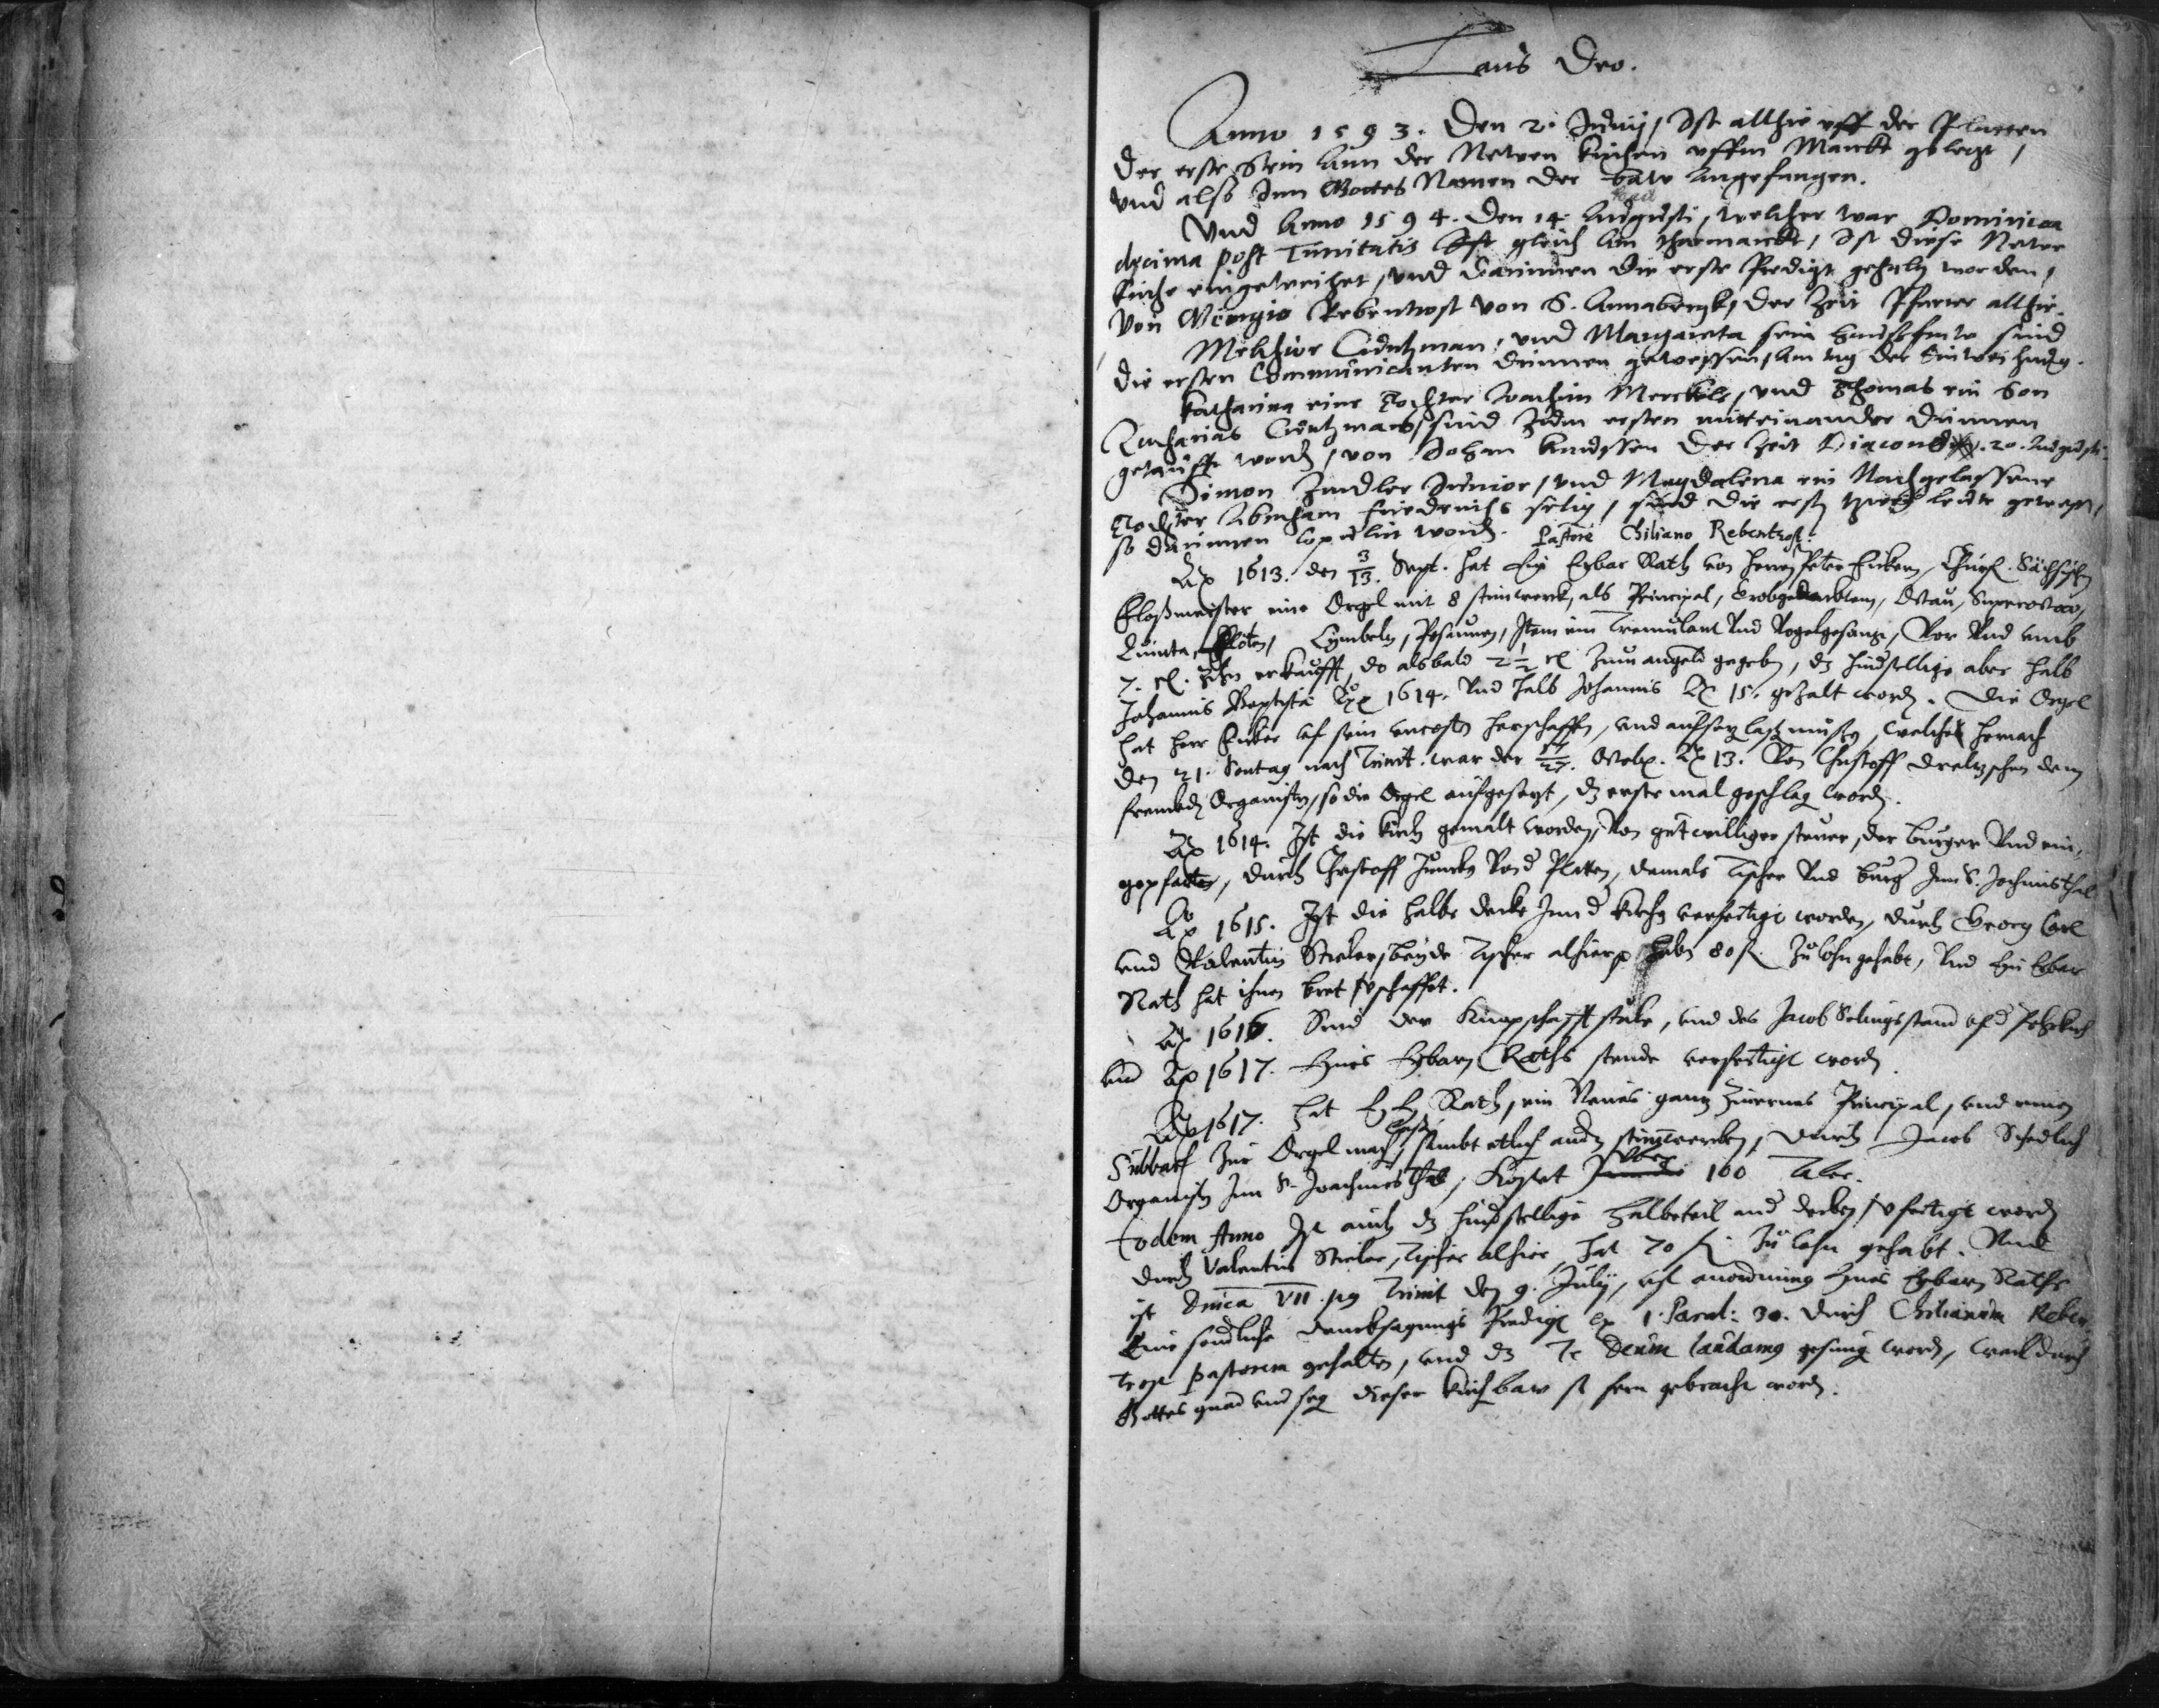 Laus Deo.
Anno 1593. Den 2. Junij, Ist allhie uff der Platten
der erste Stein Ann der Newen Kirchen uffm Marckt gelegt,
Vnd also Inn Gottes Namen der baw Angefangen.
baw
Vnd Anno 1594. Den 14. Augusti, welcher war Dominica
decima post Trinitatis Ist gleich am Jharmarckt, Ist diese Newe
Kirche eingeweihet, vnd darinnen die erste Predigt gehalten worden,
Von Remigio Rebentrost von S. Annabergk, der Zeit Pfarrer allhie.
Melchior Cuntzman, vnd Margareta sein Hausfraw sind
die ersten Communicanten drinnen gewessen, Am tag der Einweihung.
Katharina eine Tochter Joachim Merckels, vnd Thomas ein Son
Zacharias Cuntzmans, sind Zum ersten mitteinander drinnen
getaufft worden, von Johan der Zeit Diacono 20. Augusti.
Simon Junior, vnd Magdalena ein Nachgelassene
Tochter Abraham Friedrichs selig, sind die ersten leute gewesen,
so drinnen copulirt worden. Pastore Chiliano Rebentrost.
Ao 1613. den 3/13. Sept. hat Ein Erbar Rath von Herren Peter Churf. Sächsischen
Floßmeister eine Orgel mit 8 stimwerck, als Principal, Grobgedackten, Octau, Superoctav,
Quinta, Flöten, Cymbeln, Posaunen, Item ein Tremulant Vnd Vogelgesang, Vor Vnd umb
erkaufft, do alsbald 2 1/2 Zum angeld gegeben, dz hinderstellige aber halb
Johannis Baptistä Ao 1614. Vnd halb Johannis Ao 15. gezalt worden. Die Orgel
hat Herr vf sein vncosten herschaffen, vnd aufsetzen lassen müssen, welche hernach
den 21. Sontag nach Trinit. war der 17/27. Octob. Ao 13. Von Christoff dem
frembden Organisten, so die Orgel aufgesetzt, dz erste mal geschlagen worden.
Ao 1614. Ist die Kirch gemalt worden, Von gutwilliger steuer, der Burger Vnd ein-
gepfarten, durch Christoff Vonder Platten, damals Tischer Vnd Burger Inn S. Jochimsthal
Ao 1615. Ist die halbe decke Inn der Kirchen verfertigt worden, durch Georg Carl
vnd Valentin Stieler, beyde Tischer alhier, haben 80 fl. Zu lohn gehabt, Vnd Ein Erbar
Rath hat ihnen bret verschaffet.
Ao 1616. Sind der Knapschafft stüle, vnd des Jacob
vnd Ao 1617. Eines Erbarn Raths stende verfertigt worden.
Ao 1617. hat E. E. Rath, ein Neues gantz Zinernes Principal, vnd einen
lassen
Subbaß Zur Orgel machen, sambt etlich andern stimwercken, durch Jacob Schedlich
vber
Organisten Inn S. Joachimsthal, Kostet 100 Taler.
Eodem Anno Ist auch dz hinderstellige halbeteil ander decken verfertigt worden
durch Valentin Stieler, Tischer alhier, hat 70 fl. Zu lohn gehabt. Vnd
ist Dnica VII. post Trinit den 9. Julij, vf anordnung Eines Erbarn Raths
Eine sonderliche dancksagungs Predigt ex 1. Paral: 30. durch Chilianum Reben-
trost pastorem gehalten, vnd dz Te Deum laudamus gesungen worden, weil durch
Gottes gnad vnd segen dieser Kirchbaw so fern gebracht worden.